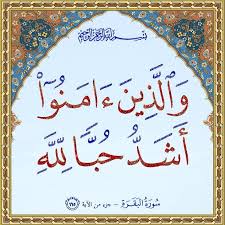 بسم الله الرحمن الرحيم
وَٱلَّذِينَ ءَامَنُوٓا۟
أَشَدُّ حُبًّا لِّلَّهِ
سُورَةُ البَقَرَة ١٦٥ – جزء من الآية